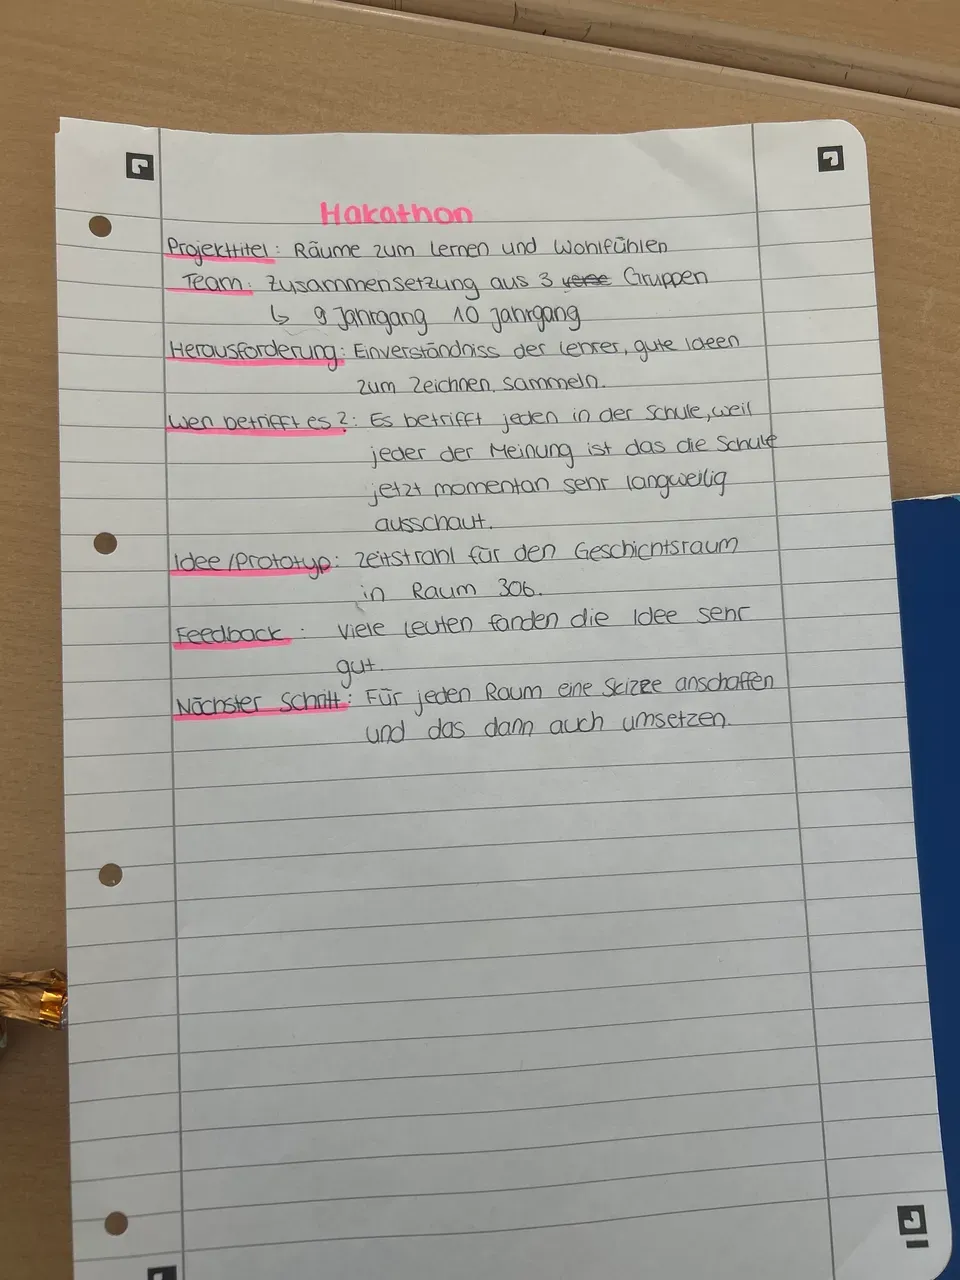 Hakathon
Projekttitel: Räume zum Lernen und Wohlfühlen
Team: Zusammensetzung aus 3 Gruppen
↳ 9 Jahrgang 10 Jahrgang
Herausforderung: Einverständniss der Lehrer, gute Ideen
zum Zeichnen sammeln.
Wen betrifft es?: Es betrifft jeden in der Schule, weil
jeder der Meinung ist das die Schule
jetzt momentan sehr langweilig
ausschaut.
Idee/Prototyp: Zeitstrahl für den Geschichtsraum
in Raum 306.
Feedback: Viele Leuten fanden die Idee sehr
gut.
Nächster Schritt: Für jeden Raum eine Skizze anschaffen
und das dann auch umsetzen.